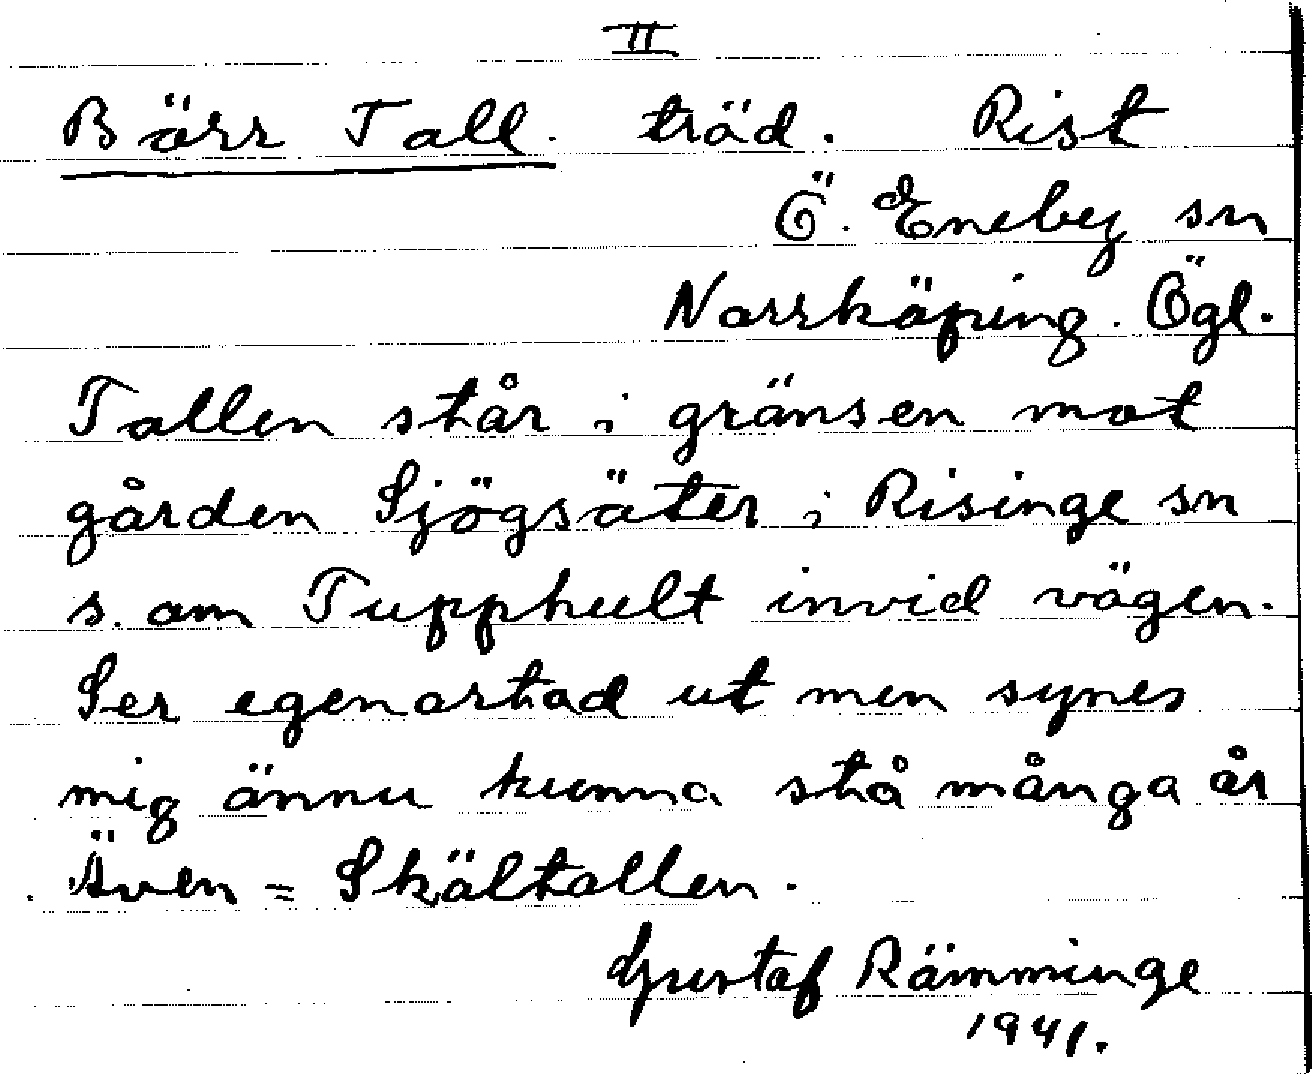 II
Börr Tall. träd. Rist
Ö. Eneby sn
Norrköping. Ögl.
Tallen står i gränsen mot
gården Sjögsäter i Risinge sn
s. om Tupphult invid vägen.
Ser egenartad ut men synes
mig ännu kunna stå många år
Även = Skältallen.
Gustaf Rämminge
1941.